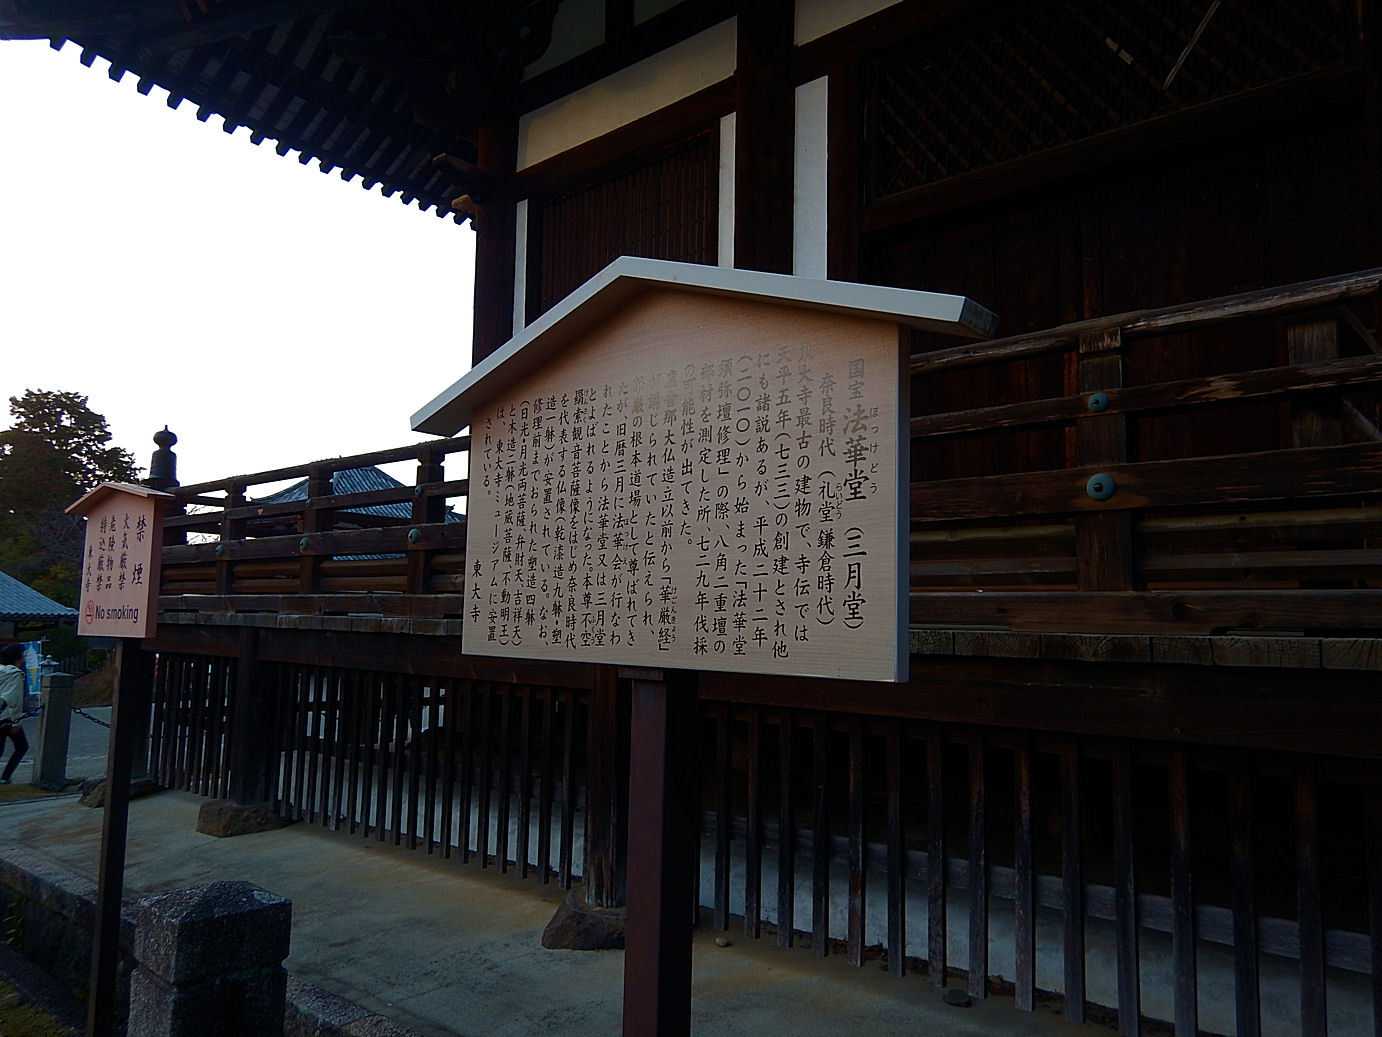 国宝 法華堂 （三月堂）
ほっけどう
奈良時代（礼堂 鎌倉時代）
らいどう
大寺最古の建物で、寺伝では
天平五年（七三三）の創建とされ他
にも諸説あるが、平成二十二年
（二〇一〇）から始まった「法華堂
須弥壇修理」の際、八角二重壇の
部材を測定した所、七二九年伐採
の可能性が出てきた。
盧舎那大仏造立以前から「華厳経」
けごんきょう
じられていたと伝えられ、
の根本道場として尊ばれてき
たが、旧暦三月に法華会が行なわ
れたことから法華堂又は三月堂
とよばれるようになった。本尊不空
羂索観音菩薩像をはじめ奈良時代
を代表する仏像（乾漆造九躰・塑
造一躰）が安置されている。なお、
修理前までおられた塑造四躰
（日光・月光両菩薩、弁財天、吉祥天）
と木造二躰（地蔵菩薩、不動明王）
は、東大寺ミュージアムに安置
されている。
東大寺
禁煙
火気厳禁
危険物品
特込厳禁
東大寺
No smoking